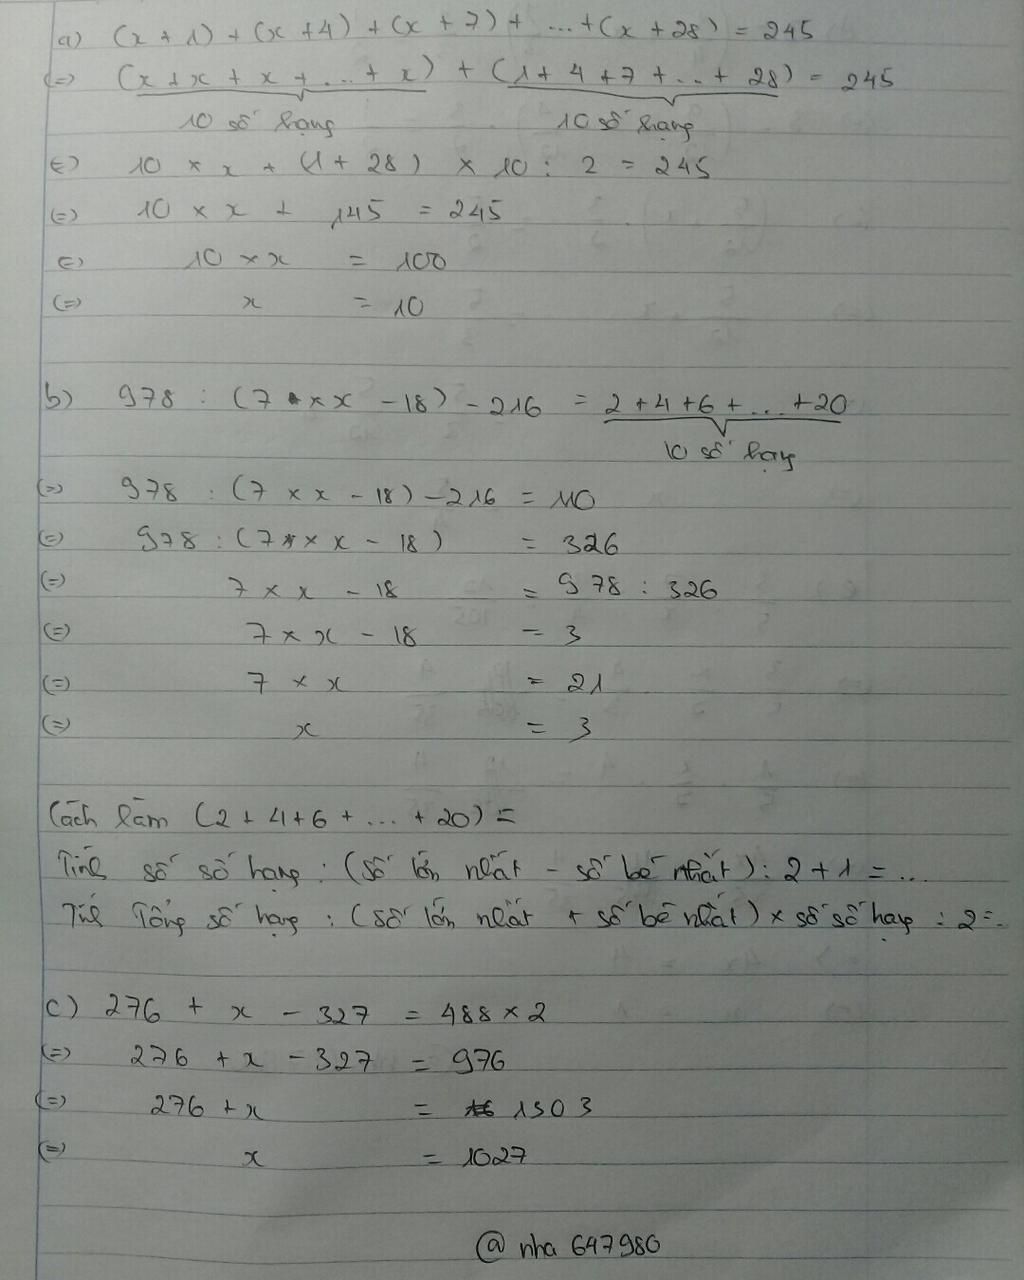 a) (x + 1) + (x + 4) + (x + 7) + ... + (x + 28) = 245
(=) (x + x + x + ... + x) + (1 + 4 + 7 + ... + 28) = 245
10 số hạng 10 số hạng
(=) 10 × x + (1 + 28) × 10 : 2 = 245
(=) 10 × x + 145 = 245
(=) 10 × x = 100
(=) x = 10
b) 978 : (7 × x - 18) - 216 = 2 + 4 + 6 + ... + 20
10 số hạng
(=) 978 : (7 × x - 18) - 216 = 110
(=) 978 : (7 × x - 18) = 326
(=) 7 × x - 18 = 978 : 326
(=) 7 × x - 18 = 3
(=) 7 × x = 21
(=) x = 3
Cách làm (2 + 4 + 6 + ... + 20) =
Tính số số hạng : (số lớn nhất - số bé nhất) : 2 + 1 = ...
Tính Tổng số hạng : (số lớn nhất + số bé nhất) × số số hạng : 2 = ..
c) 276 + x - 327 = 488 × 2
(=) 276 + x - 327 = 976
(=) 276 + x = 1303
(=) x = 1027
@ nha 647980